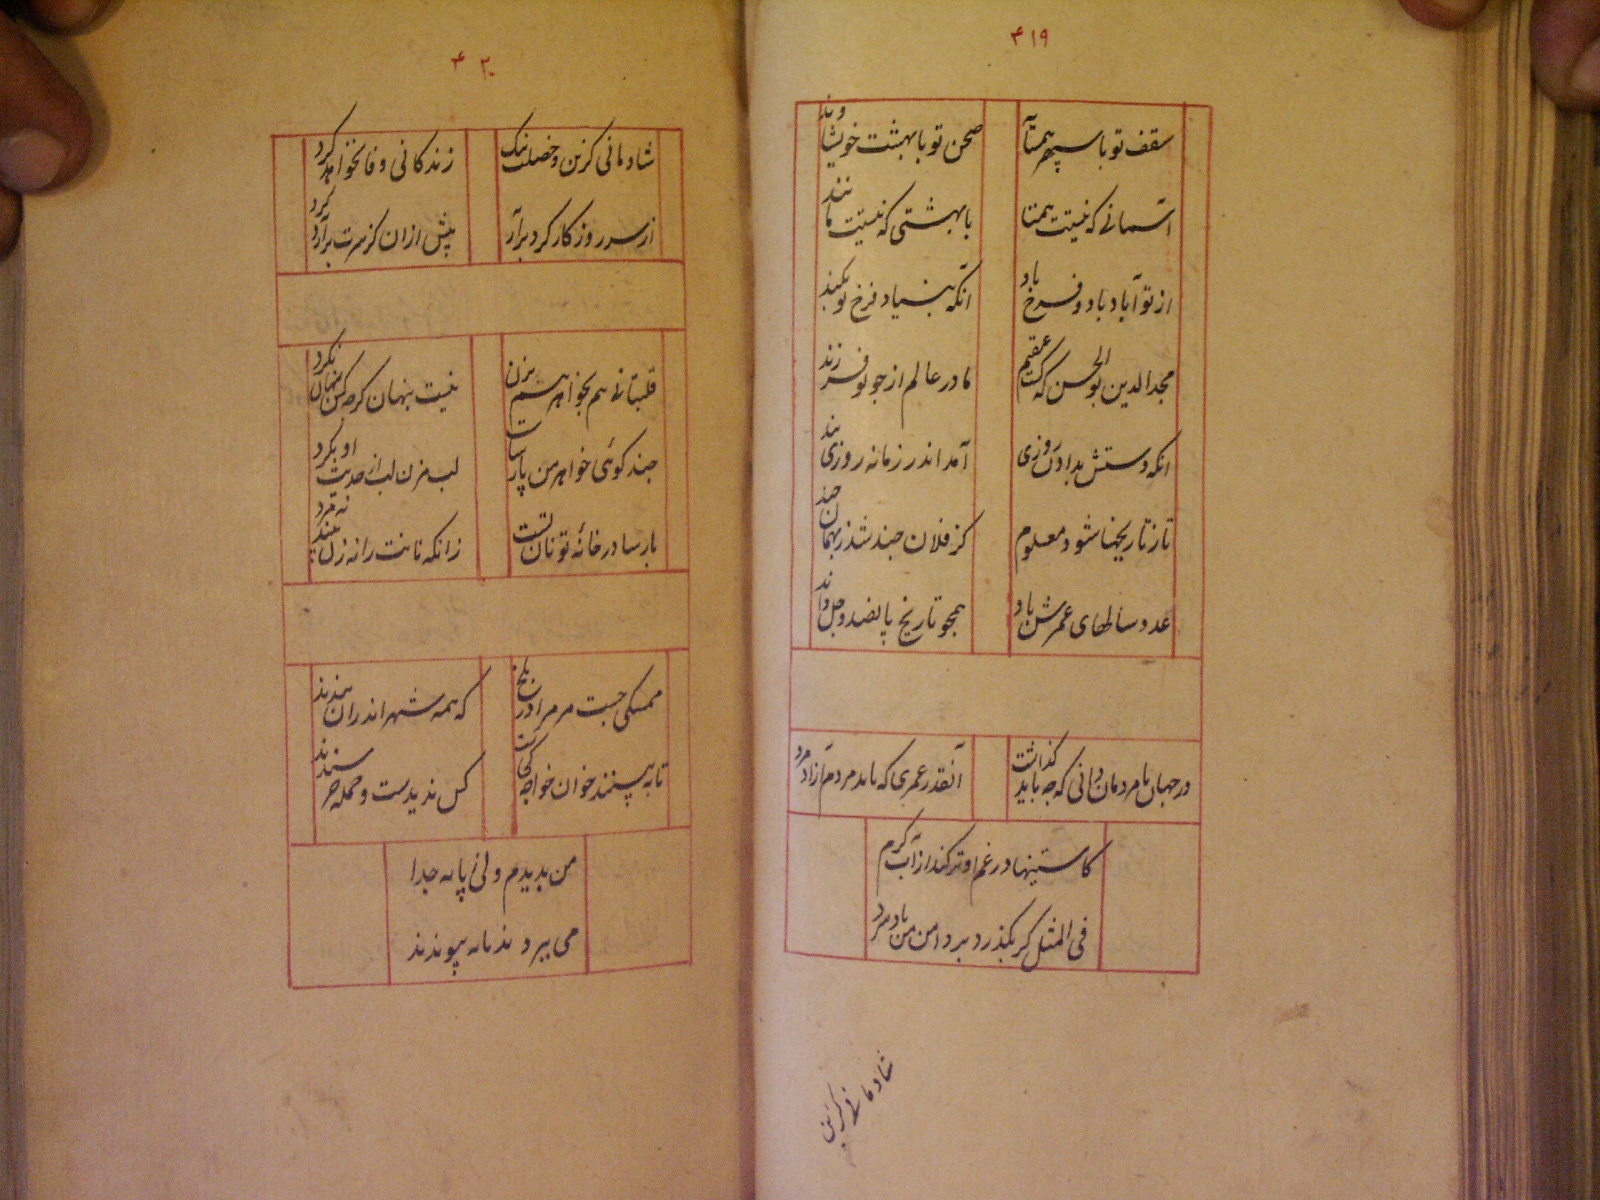 ۴۱۹
سقف تو با سپهر همتا
صحن تو با بهشت خویشاوند
آسمانی که نیستت همتا
با بهشتی که نیستت مانند
از تو آباد باد و فرخ باد
آنکه بنیاد فرخ تو فکند
مجدالدین بوالحسن که گشت عقیم
مادر عالم از چو تو فرزند
آنکه دستش بدادن روزی
آمد اندر زمانه روزی بند
تا ز تاریخها شود معلوم
کز فلان چند شد ز بهمان چند
عدد سالهای عمرش باد
همچو تاریخ پانصد و چل و اند
در جهان با مردمان دانی که چه باید گذاشت
آنقدر عمری که یابد مردم آزاد مرد
کاستینها در غم او تر کند از آب گرم
فی المثل گر بگذرد بر دامن من باد سرد
شادمانی گزین
۴۲۰
شادمانی گزین و خصلت نیک
زندگانی وفا نخواهد کرد
از سر روزگار گرد برآر
پیش از آن کز سرت برآرد گرد
قلتبانی هم بخواهر هم بزن
نیست پنهان گرچه کس پنهان نکرد
چند گوئی خواهر من پارساست
لب مزن لب از حدیث او بگرد
پارسا در خانهٔ تو نان تست
زانکه نانت را نه زن بیند نه مرد
ممسکی چیست مر مرا در بلخ
که همه شهر اندران بندند
تا به بینند خوان خواجه کجاست
کس ندیدست و جمله خرسندند
من بدیدم ولی پایه جدا
می بپرد ندانه پیوندند